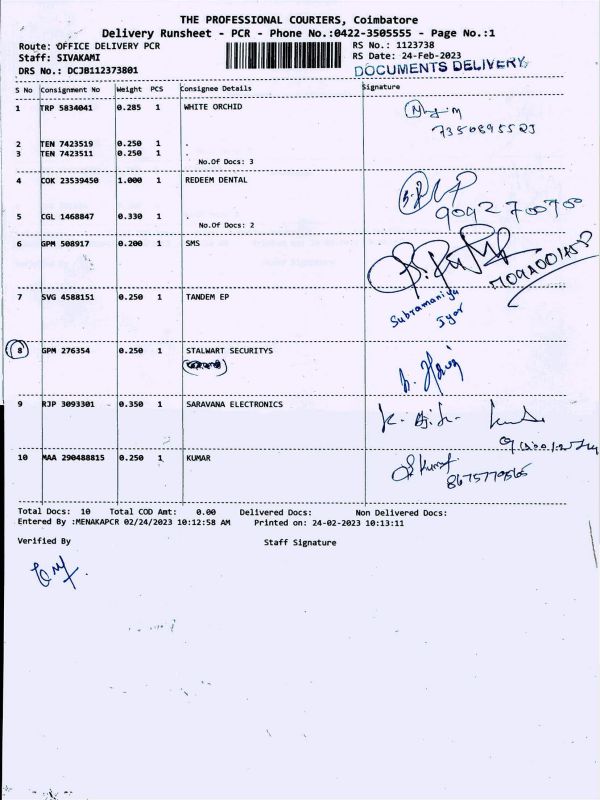 THE PROFESSIONAL COURIERS, Coimbatore
Delivery Runsheet - PCR - Phone No.:0422-3505555 - Page No.:1
Route: OFFICE DELIVERY PCR RS No.: 1123738
Staff: SIVAKAMI RS Date: 24-Feb-2023
DRS No.: DCJB112373801 DOCUMENTS DELIVERY
S No Consignment No Weight PCS Consignee Details Signature
1 TRP 5834041 0.285 1 WHITE ORCHID
2 TEN 7423519 0.250 1 .
3 TEN 7423511 0.250 1 .
No.Of Docs: 3
4 COK 23539450 1.000 1 REDEEM DENTAL
9092 700700
5 CGL 1468847 0.330 1 .
No.Of Docs: 2
6 GPM 508917 0.200 1 SMS
7 SVG 4588151 0.250 1 TANDEM EP
Subramaniya
Iyer
8 GPM 276354 0.250 1 STALWART SECURITYS
9 RJP 3093301 0.350 1 SARAVANA ELECTRONICS
10 MAA 290488815 0.250 1 KUMAR
Total Docs: 10 Total COD Amt: 0.00 Delivered Docs: Non Delivered Docs:
Entered By :MENAKAPCR 02/24/2023 10:12:58 AM Printed on: 24-02-2023 10:13:11
Verified By Staff Signature